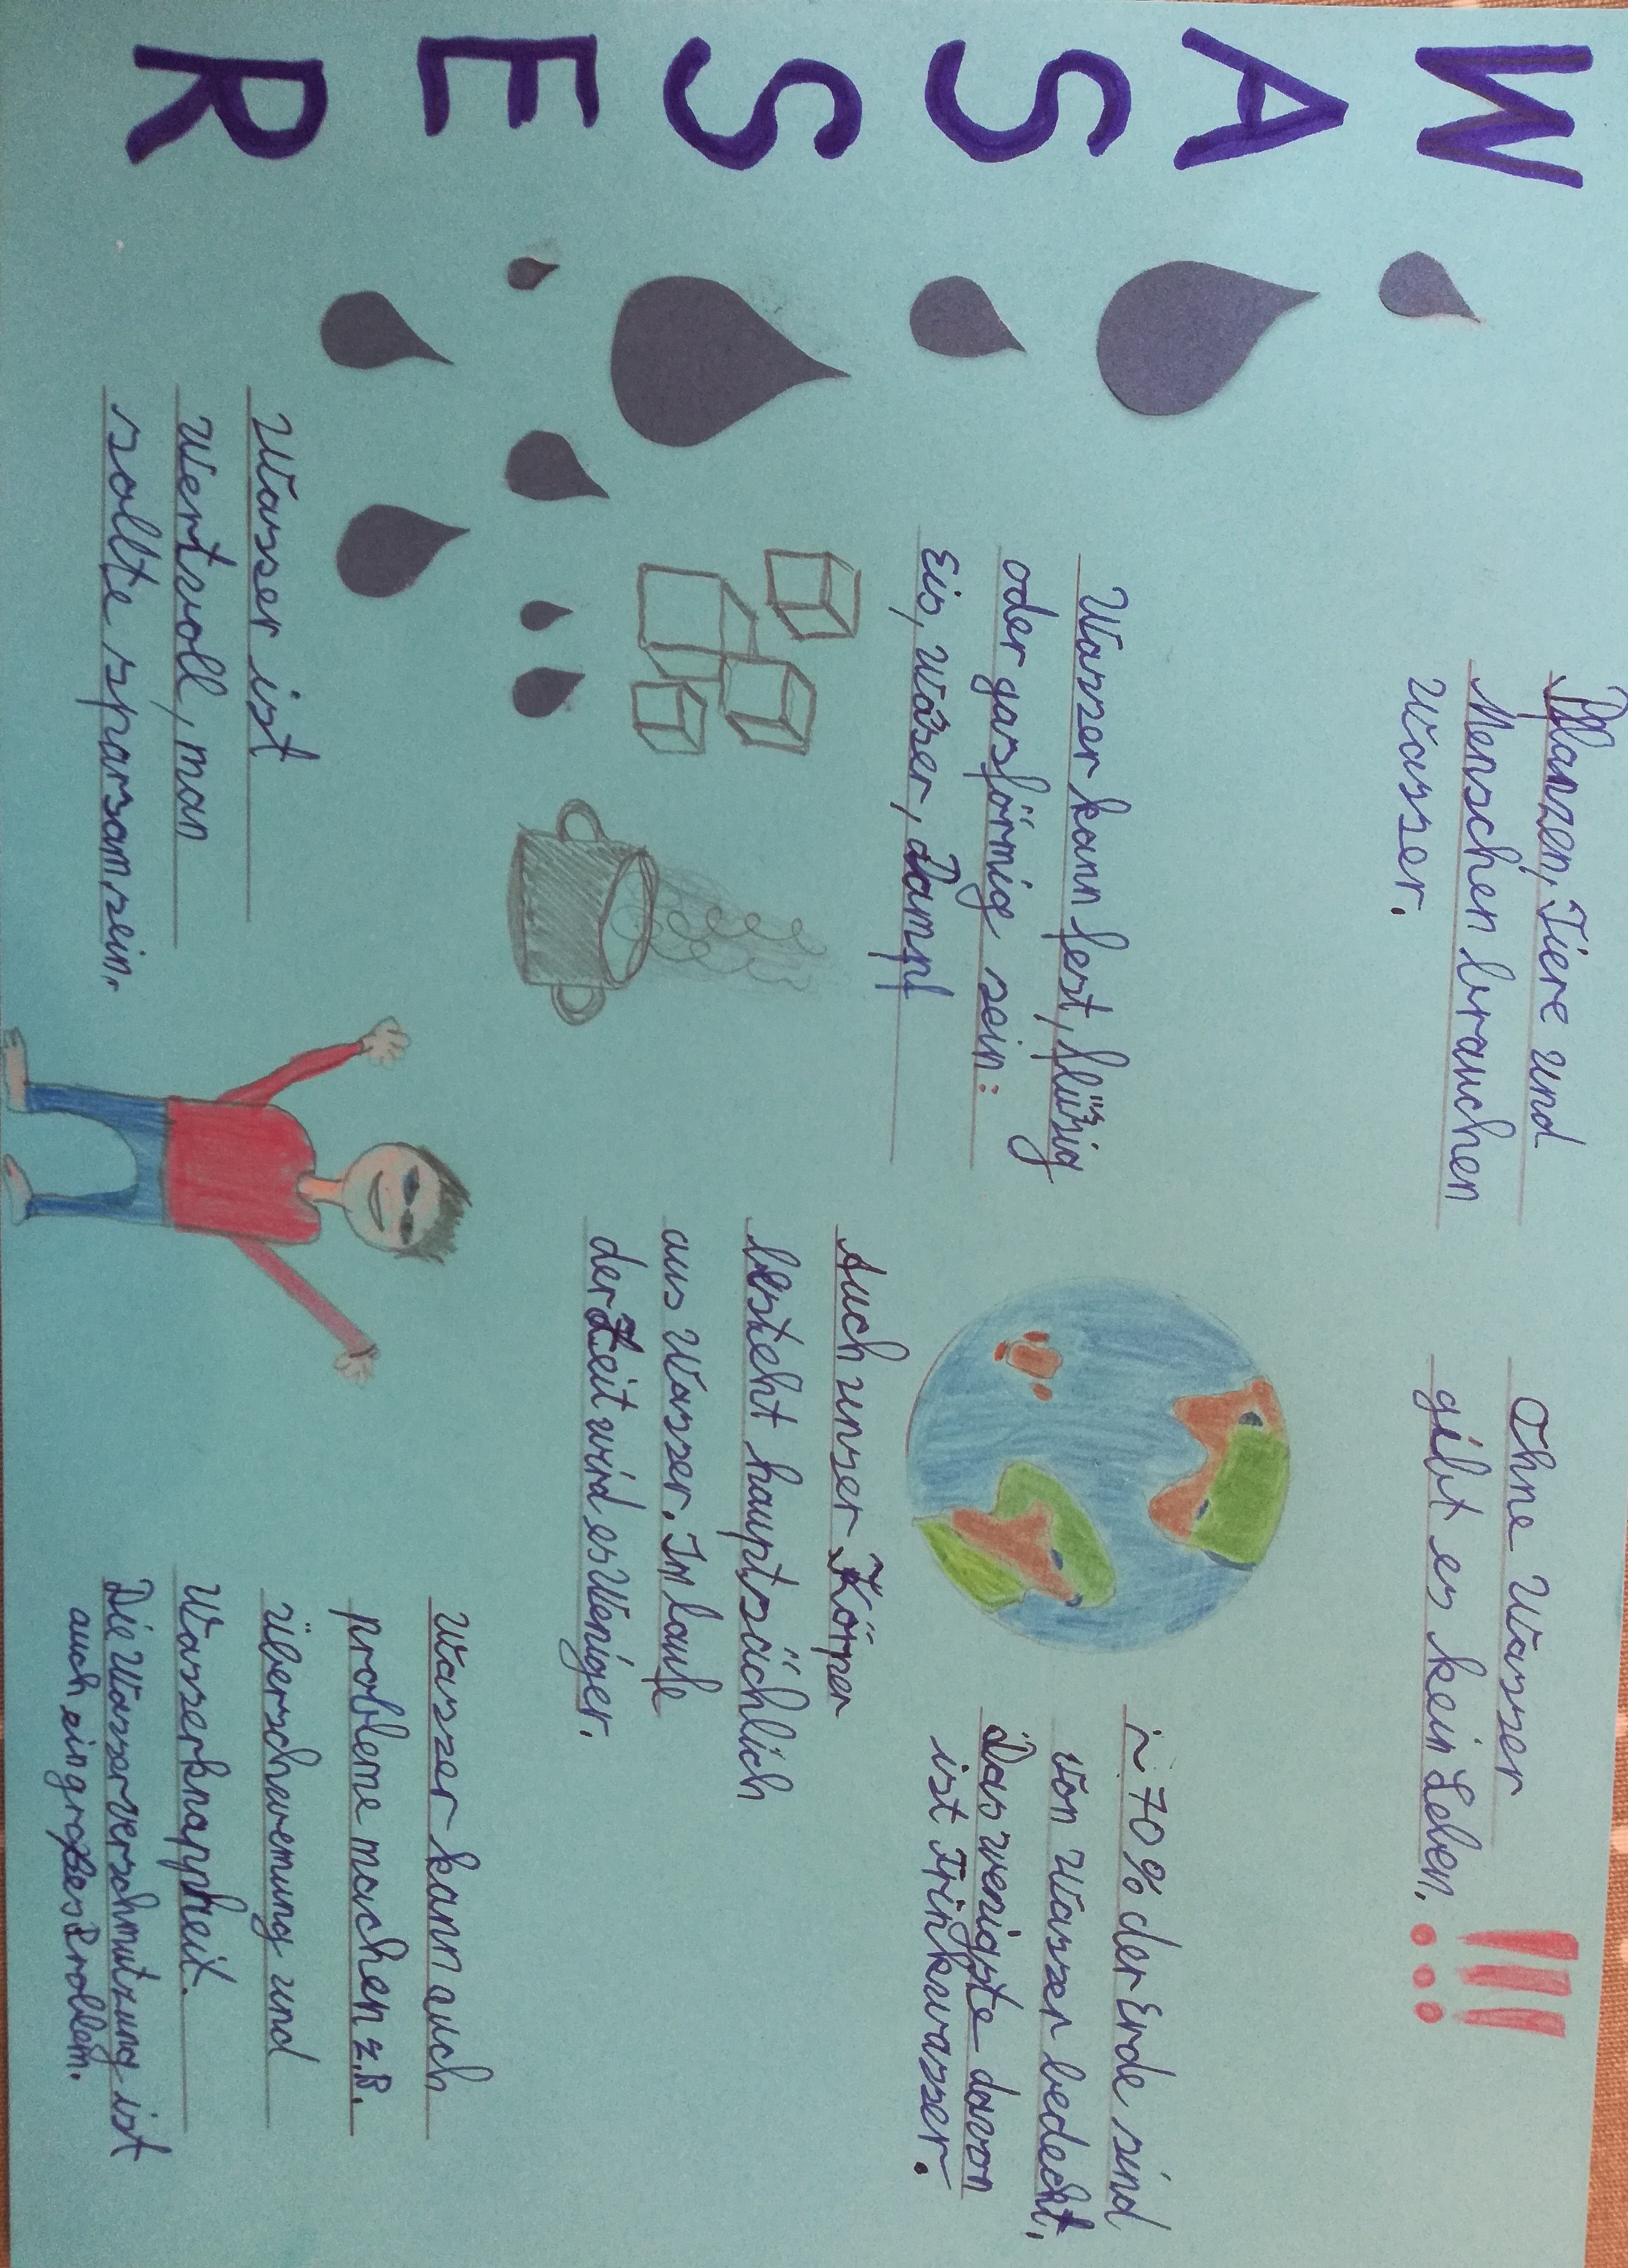 W
A
S
S
E
R
Pflanzen, Tiere und
Menschen brauchen
Wasser.
Ohne Wasser
gibt es kein Leben. !!!
Wasser kann fest, flüssig
oder gasförmig sein:
Eis, Wasser, Dampf
~70% der Erde sind
von Wasser bedeckt,
Das wenigste davon
ist Trinkwasser.
Auch unser Körper
besteht hauptsächlich
aus Wasser. Im laufe
der Zeit wird es Weniger.
Wasser ist
Wertvoll, man
sollte sparsam sein.
Wasser kann auch
probleme machen z.B.
überschwemung und
Wasserknappheit.
Die Wasserverschmutzung ist
auch ein großes Problem.